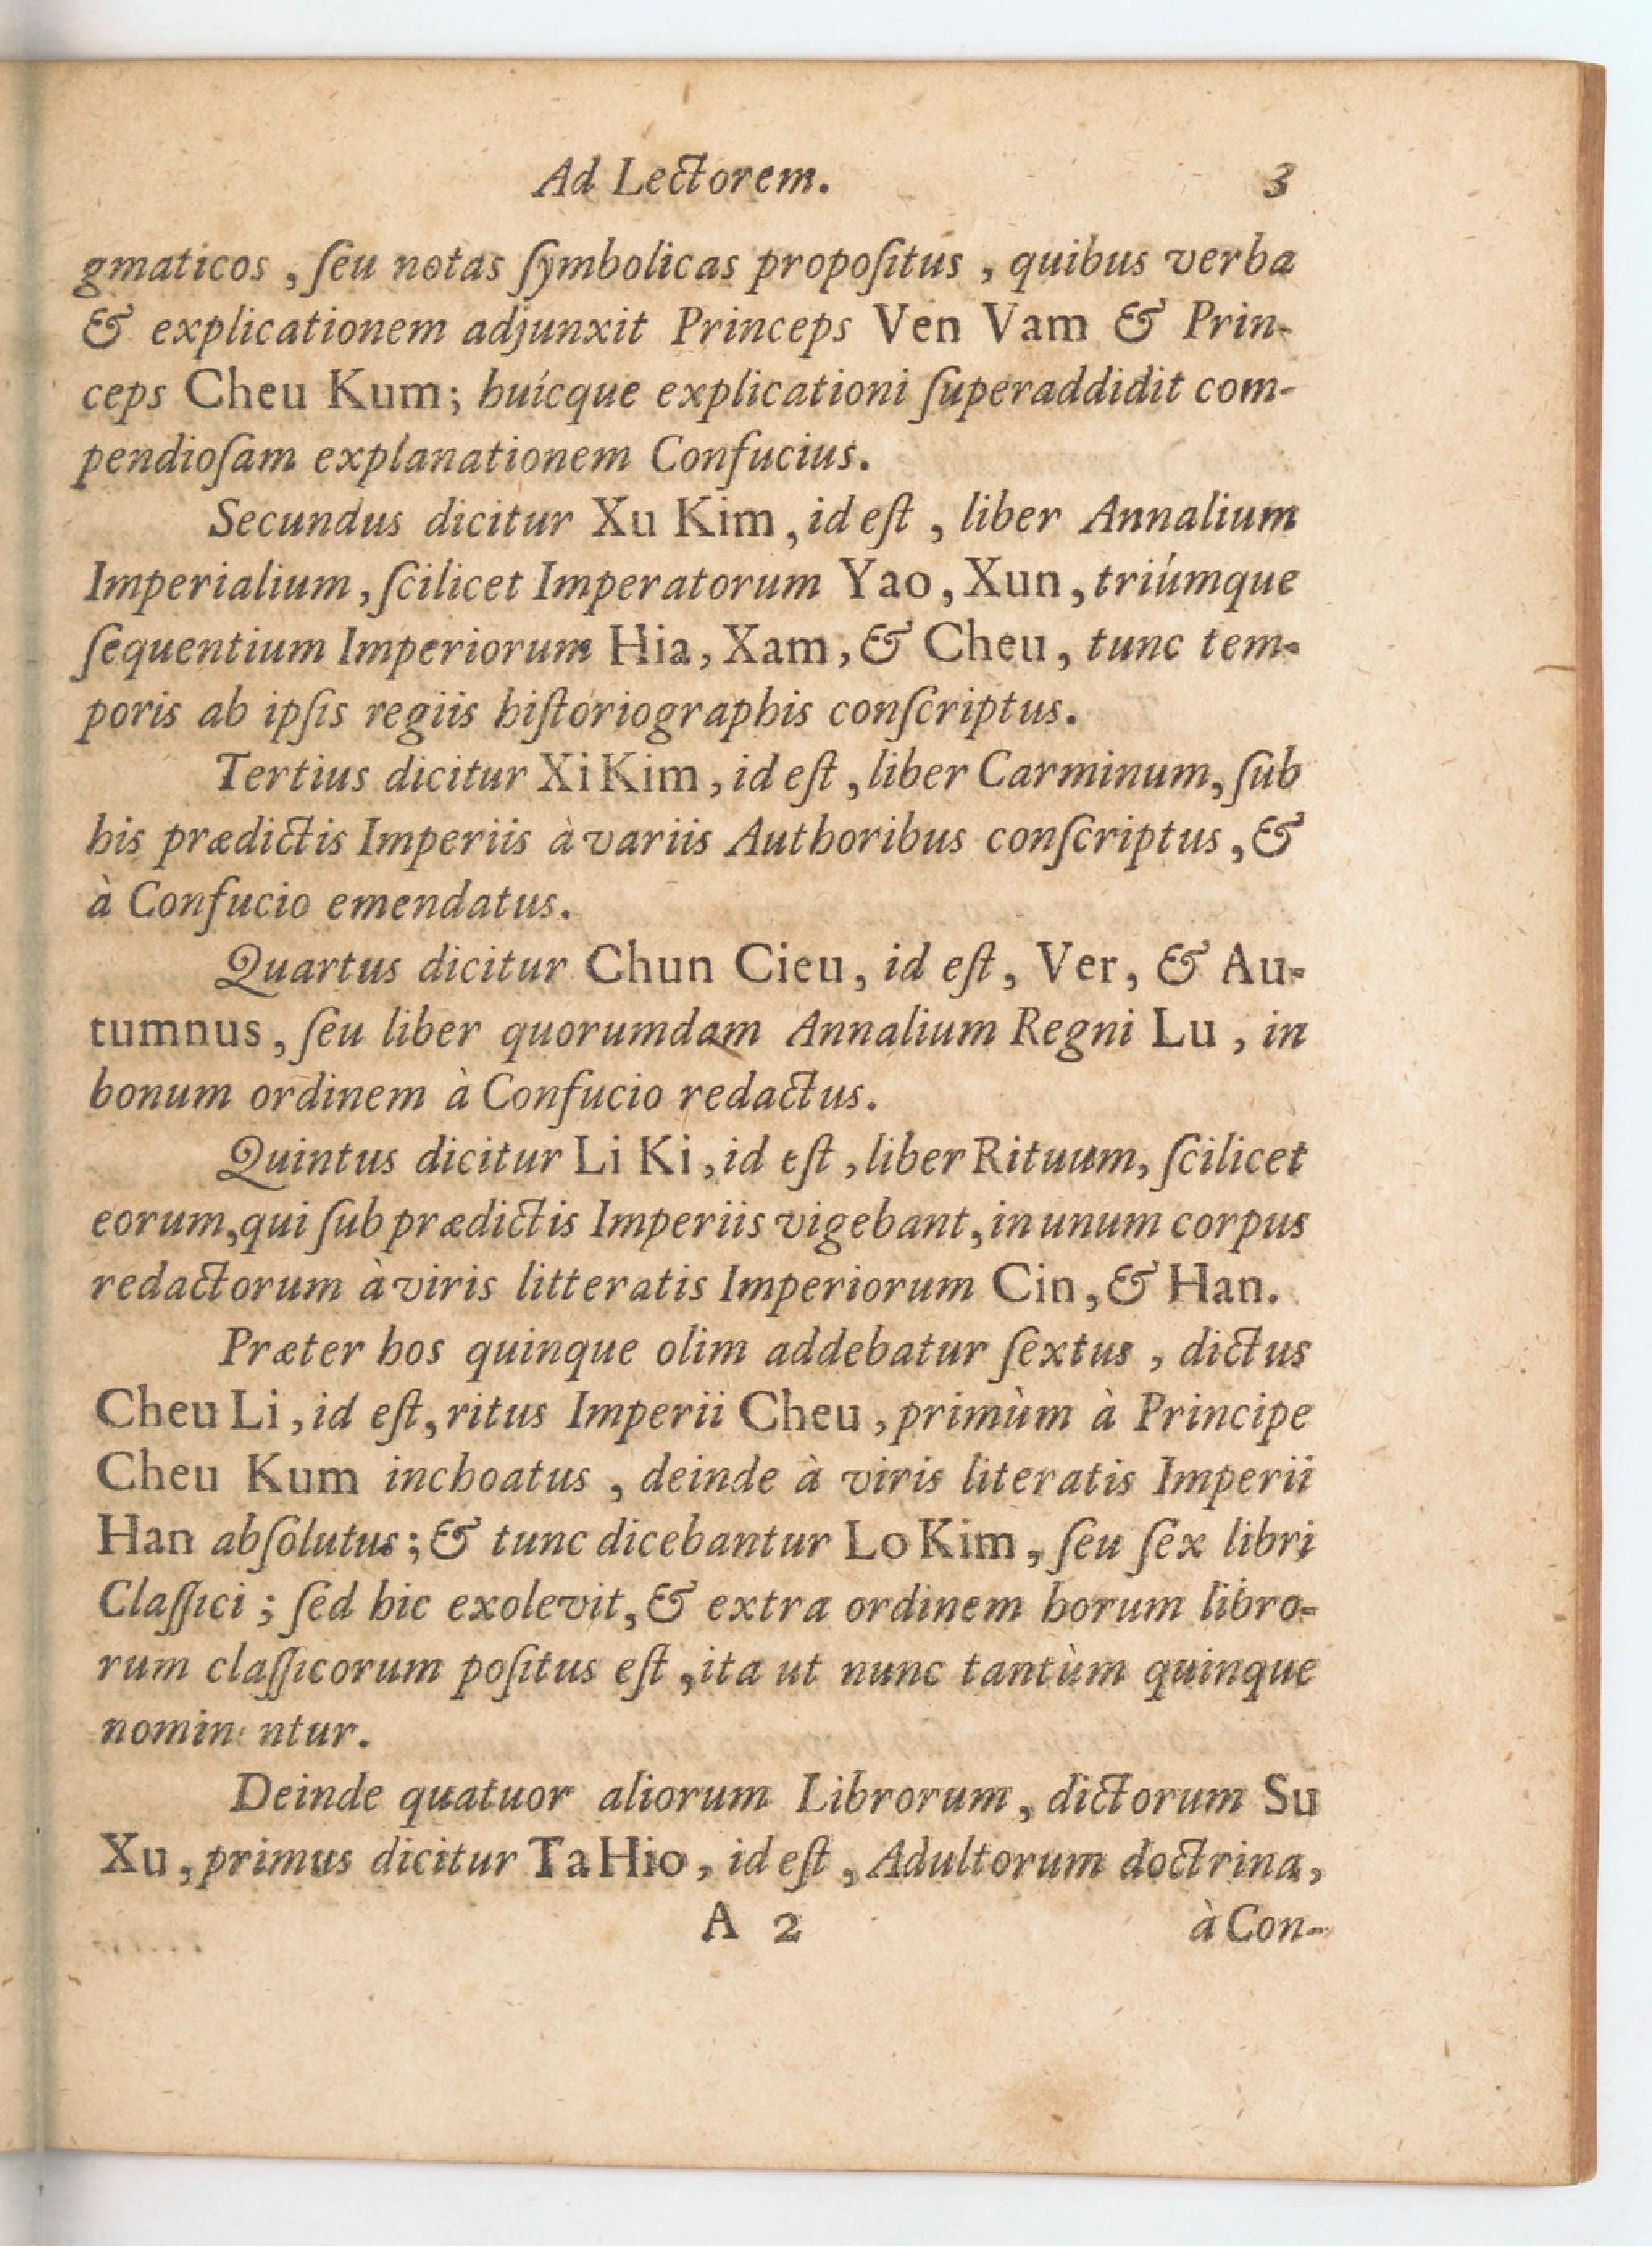 Ad Lectorem. 3
gmaticos, ſeu notas ſymbolicas propoſitus, quibus verba
& explicationem adjunxit Princeps Ven Vam & Prin-
ceps Cheu Kum; huícque explicationi ſuperaddidit com-
pendioſam explanationem Confucius.
Secundus dicitur Xu Kim, id eſt, liber Annalium
Imperialium, ſcilicet Imperatorum Yao, Xun, triúmque
ſequentium Imperiorum Hia, Xam, & Cheu, tunc tem-
poris ab ipſis regiis hiſtoriographis conſcriptus.
Tertius dicitur Xi Kim, id eſt, liber Carminum, ſub
his prædictis Imperiis à variis Authoribus conſcriptus, &
à Confucio emendatus.
Quartus dicitur Chun Cieu, id eſt, Ver, & Au-
tumnus, ſeu liber quorumdam Annalium Regni Lu, in
bonum ordinem à Confucio redactus.
Quintus dicitur Li Ki, id eſt, liber Rituum, ſcilicet
eorum, qui ſub prædictis Imperiis vigebant, in unum corpus
redactorum à viris litteratis Imperiorum Cin, & Han.
Præter hos quinque olim addebatur ſextus, dictus
Cheu Li, id eſt, ritus Imperii Cheu, primùm à Principe
Cheu Kum inchoatus, deinde à viris literatis Imperii
Han abſolutus; & tunc dicebantur Lo Kim, ſeu ſex libri
Claſſici; ſed hic exolevit, & extra ordinem horum libro-
rum claſſicorum poſitus eſt, ita ut nunc tantùm quinque
nomin ntur.
Deinde quatuor aliorum Librorum, dictorum Su
Xu, primus dicitur Ta Hio, id eſt, Adultorum doctrina,
A 2 à Con-